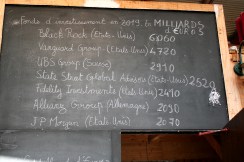 Fonds d'investissement en 2019 en MILLIARDS
d'EUROS
Black Rock (Etats-Unis) 6960
Vanguard Group (Etats Unis) 4720
UBS Group (Suisse) 2910
State Street Global Advisors (Etats-Unis) 2520
Fidelity Investments (Etats-Unis) 2490
Allianz Group (Allemagne) 2090
J.P Morgan (Etats Unis) 2070